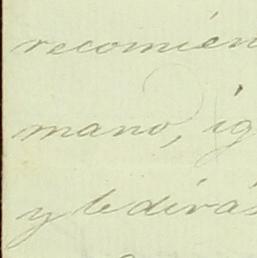 recomien
mano, ig
y le dirás